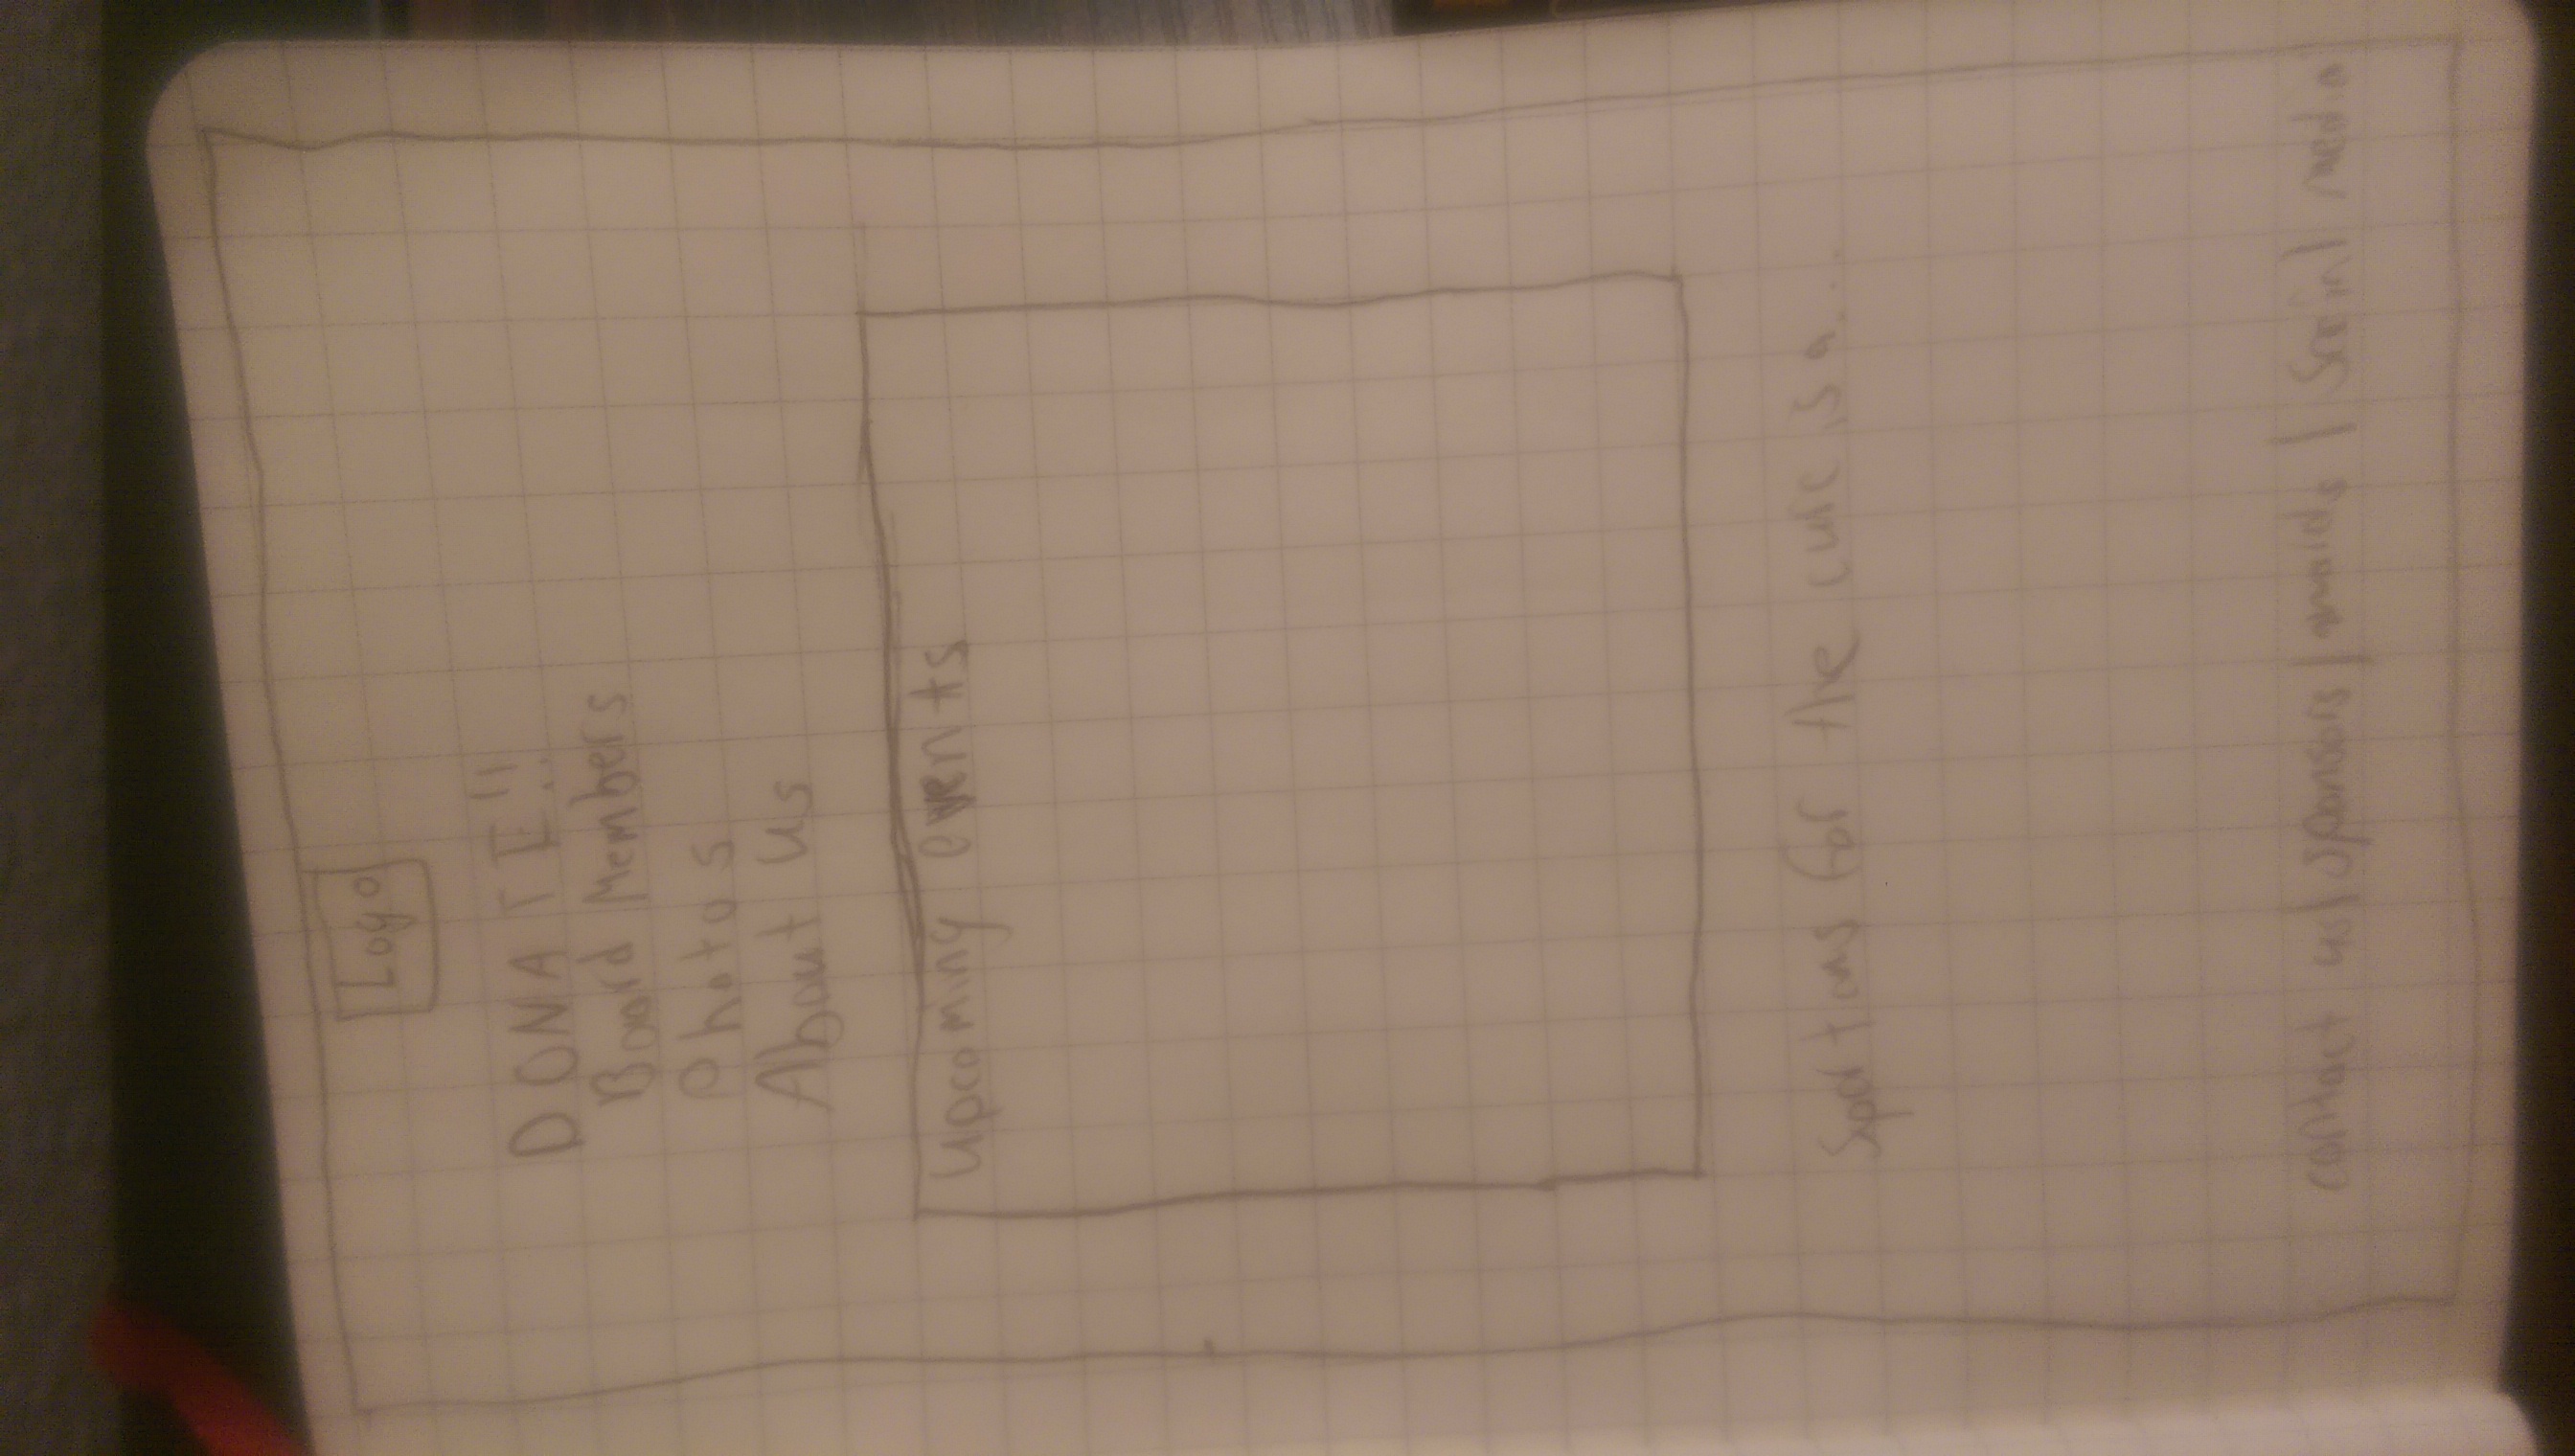 Logo
DONATE!!
Board Members
Photos
About us
upcoming events
Sportians for the cure is a...
contact us | sponsors | | Social media